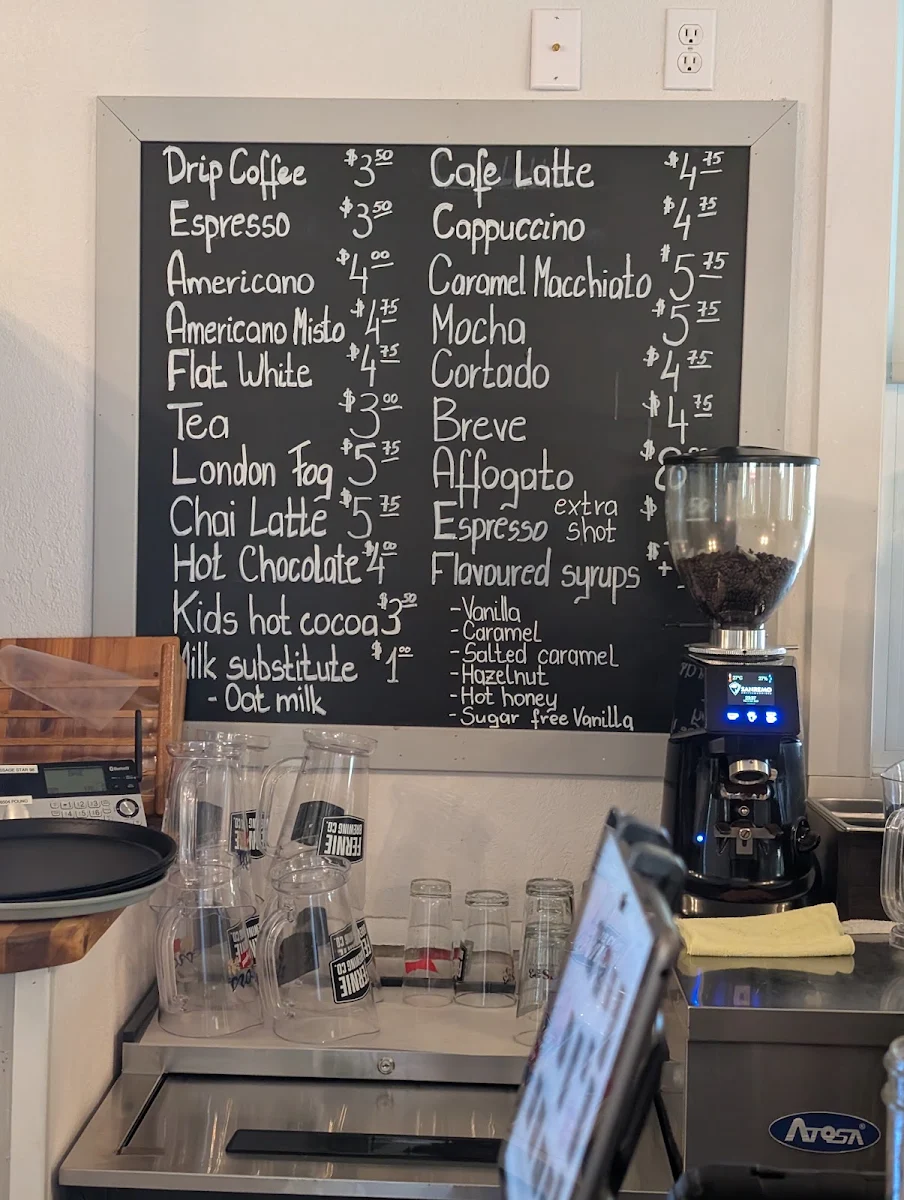 Drip Coffee $3.50
Espresso $3.50
Americano $4.00
Americano Misto $4.75
Flat White $4.75
Tea $3.00
London Fog $5.75
Chai Latte $5.75
Hot Chocolate $4.00
Kids hot cocoa $3.50
Milk substitute $1.00
- Oat milk
Cafe Latte $4.75
Cappuccino $4.75
Caramel Macchiato $5.75
Mocha $5.75
Cortado $4.75
Breve $4.75
Affogato $
Espresso extra shot $
Flavoured syrups $+
-Vanilla
-Caramel
-Salted caramel
-Hazelnut
-Hot honey
-Sugar free Vanilla
SANREMO
FERNIE
BREWING CO.
FERNIE
BREWING CO.
ATOSA